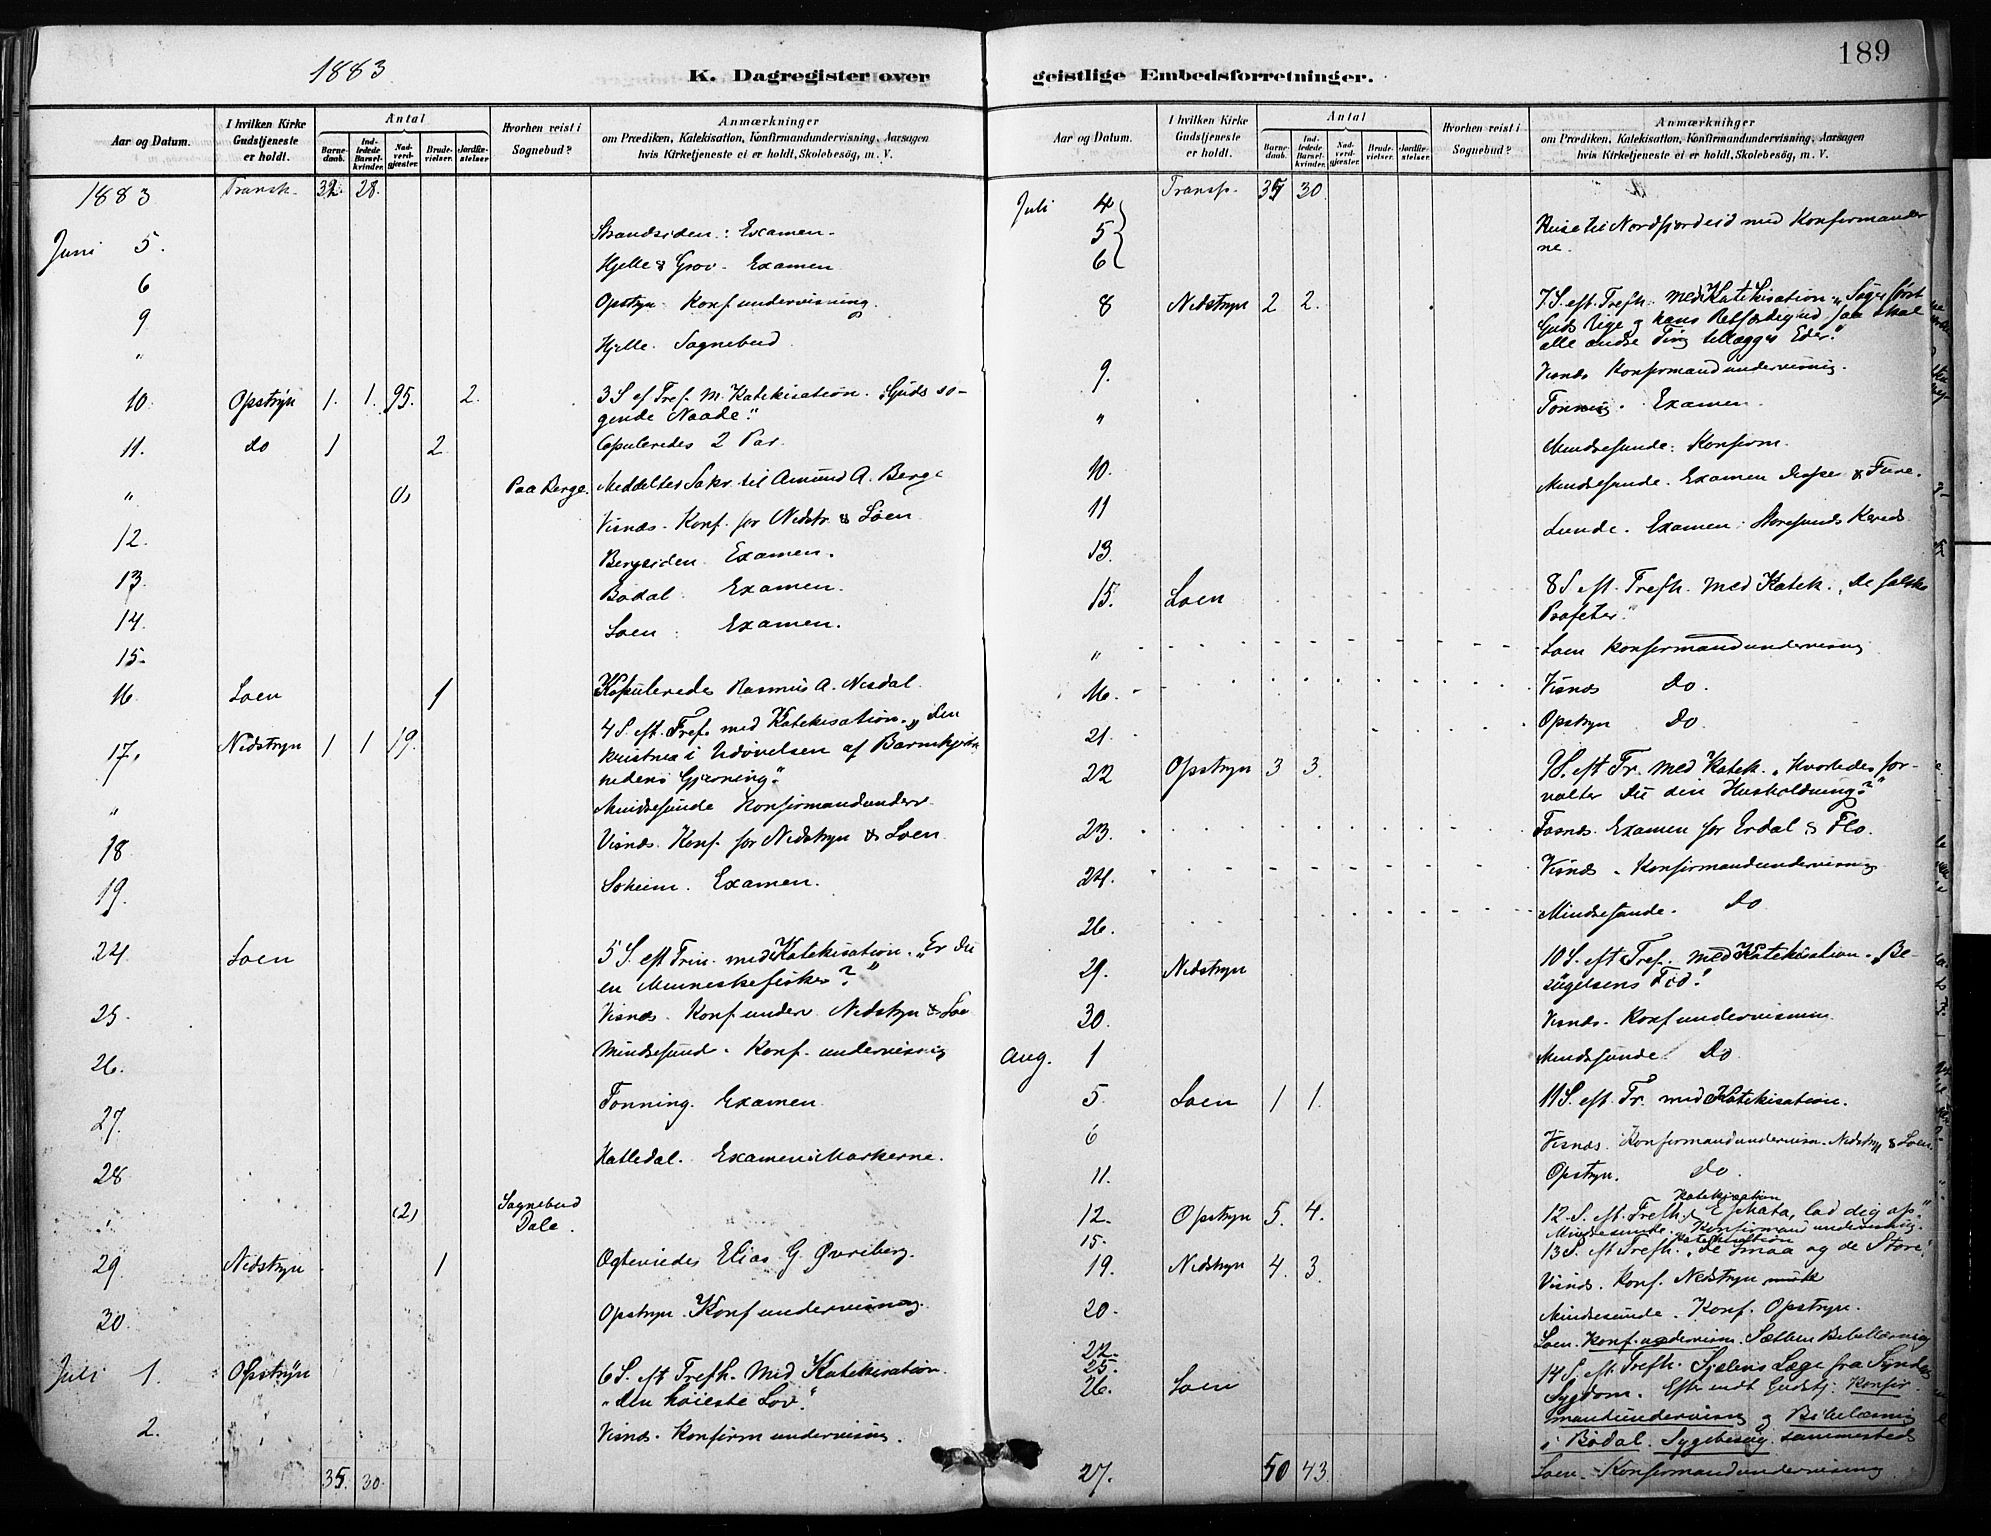 1883
K. Dagregister over
Aar og Datum.
I hvilken Kirke Gudstjeneste er holdt.
Antal
Barnedaab.
Indledede Barselkvinder.
Nadverdgjester.
Brudevielser.
Jordfæstelser
Hvorhen reist i Sognebud?
Anmærkninger
om Prædiken, Katekisation, Konfirmandundervisning, Aarsagen
hvis Kirketjeneste ei er holdt, Skolebesög, m. V.
1883 Transk. 32 28.
Juni 5. Strandsiden: Examen.
6 Hjelle & Grov. Examen
9 Opstryn. Konfundervisning.
" Hjelle. Sognebud
10 Opstryn 1. 1. 95. 2. 3 S. ef Tref. M. Katekisation. Guds sø-
gende Naade."
11. do 1 2 Copuleredes 2 Par.
" Paa Berge. Meddeltes Sakr. til Amund A. Berge
12. Visnæs. Konf. for Nedstr. & Loen
13. Bergsiden. Examen.
14. Bødal. Examen.
15. Loen: Examen.
16 Loen 1 Kopuleredes Rasmus A. Nesdal.
17. Nedstryn 1 1 19. 4 S. eft. Tref. med Katekisation. "Den
kristnes i Udøvelsen af Barmhjertig-
hedens Gjerning."
" Mindresunde Konfirmandunderv.
18 Visnæs. Konf. for Nedstryn & Loen.
19. Soheim. Examen.
24 Loen 5 S. eft Trin. med Katekisation. "Er du
en Menneskefisker?"
25 Visnæs. Konf. underv. Nedstryn & Loe
26. Mindresund. Konf. undervisnig
27. Tonning. Examen
28 Examen i Markerne.
(2) Sognebud
Dale.
29 Nedstryn 1 Ogteviedes Elias G. Øvreberg.
30. Opstryn. Konfundervisning.
Juli 1. Opstryn 6 S. eft Trefh. Med Katekisation.
"den høieste Lov."
2. Visnæs. Konfirmundervisning.
35. 30.
189
geistlige Embedsforretninger.
Aar og Datum.
I hvilken Kirke Gudstjeneste er holdt.
Antal
Barnedaab.
Indledede Barselkvinder.
Nadverdgjester.
Brudevielser.
Jordfæstelser
Hvorhen reist i Sognebud?
Anmærkninger
om Prædiken, Katekisation, Konfirmandundervisning, Aarsagen
hvis Kirketjeneste ei er holdt, Skolebesög, m. V.
Transp. 35 30
Juli 4
5 Reise til Nordfjordeid med Konfirmander
6 ne.
8 Nedstryn 2 2. 7 S. eft. Trefh. med Katekisation. "Søger først
Guds Rige og hans Retfærdighed saa skal
alle andre Ting tillægges Eder."
9. Visnæs Konfirmandundervisnig.
" Tonning. Examen
10. Mindresunde: Konfirm.
11 Mindresunde. Examen & Fure.
13. Lunde. Examen: Storesunds Kreds
15. Loen 8 S. eft. Trefh. med Katek. "De falske
Profeter."
" Loen Konfirmandundervisnig
16. Visnæs Do.
21. Opstryn Do.
22 Opstryn 3 3. 9 S. eft Tr. med Katek. "Hvorledes for-
valter du din Husholdning?"
23. Fosnæs. Examen for Erdal & Flo.
24. Visnæs. Konfirmandundervisnig
26. Mindresunde. do
29. Nedstryn 10 S. eft Tref. med Katekisation. Be-
søgelsens Tid!
30. Visnæs. Konfundervisnin
Aug. 1 Mindresunde. Do
5. Loen 1 1. 11 S. eft. Tr. med Katekisation.
6 Visnæs. Konfirmandundervisn. Nedstryn & Loen
11. Opstryn. do.
12. Opstryn 5. 4. 12. S. eft. Trefh. Katekisation Ephata, lad dig op."
15. Mindresunde. Konfirmandundervisnig.
19. Nedstryn 4. 3. 13 S. eft Trefh. Katekisation "De smaa og de Store."
Visnæs. Konf. Nedstryn
20. Mindresunde. Konf. Opstryn.
22. Loen. Konf. undervisn. Sætten Bibellæsnig
25.
26. Loen 14 S. eft. Trefh. Sjælens Læge fra Synde
Sygdom. Efter endt Gudstj. Konfir-
mandundervisng og Bibellæsnig
i Bødal. Sygebesøg sammesteds
27. 50 43 Loen. Konfirmandundervisning